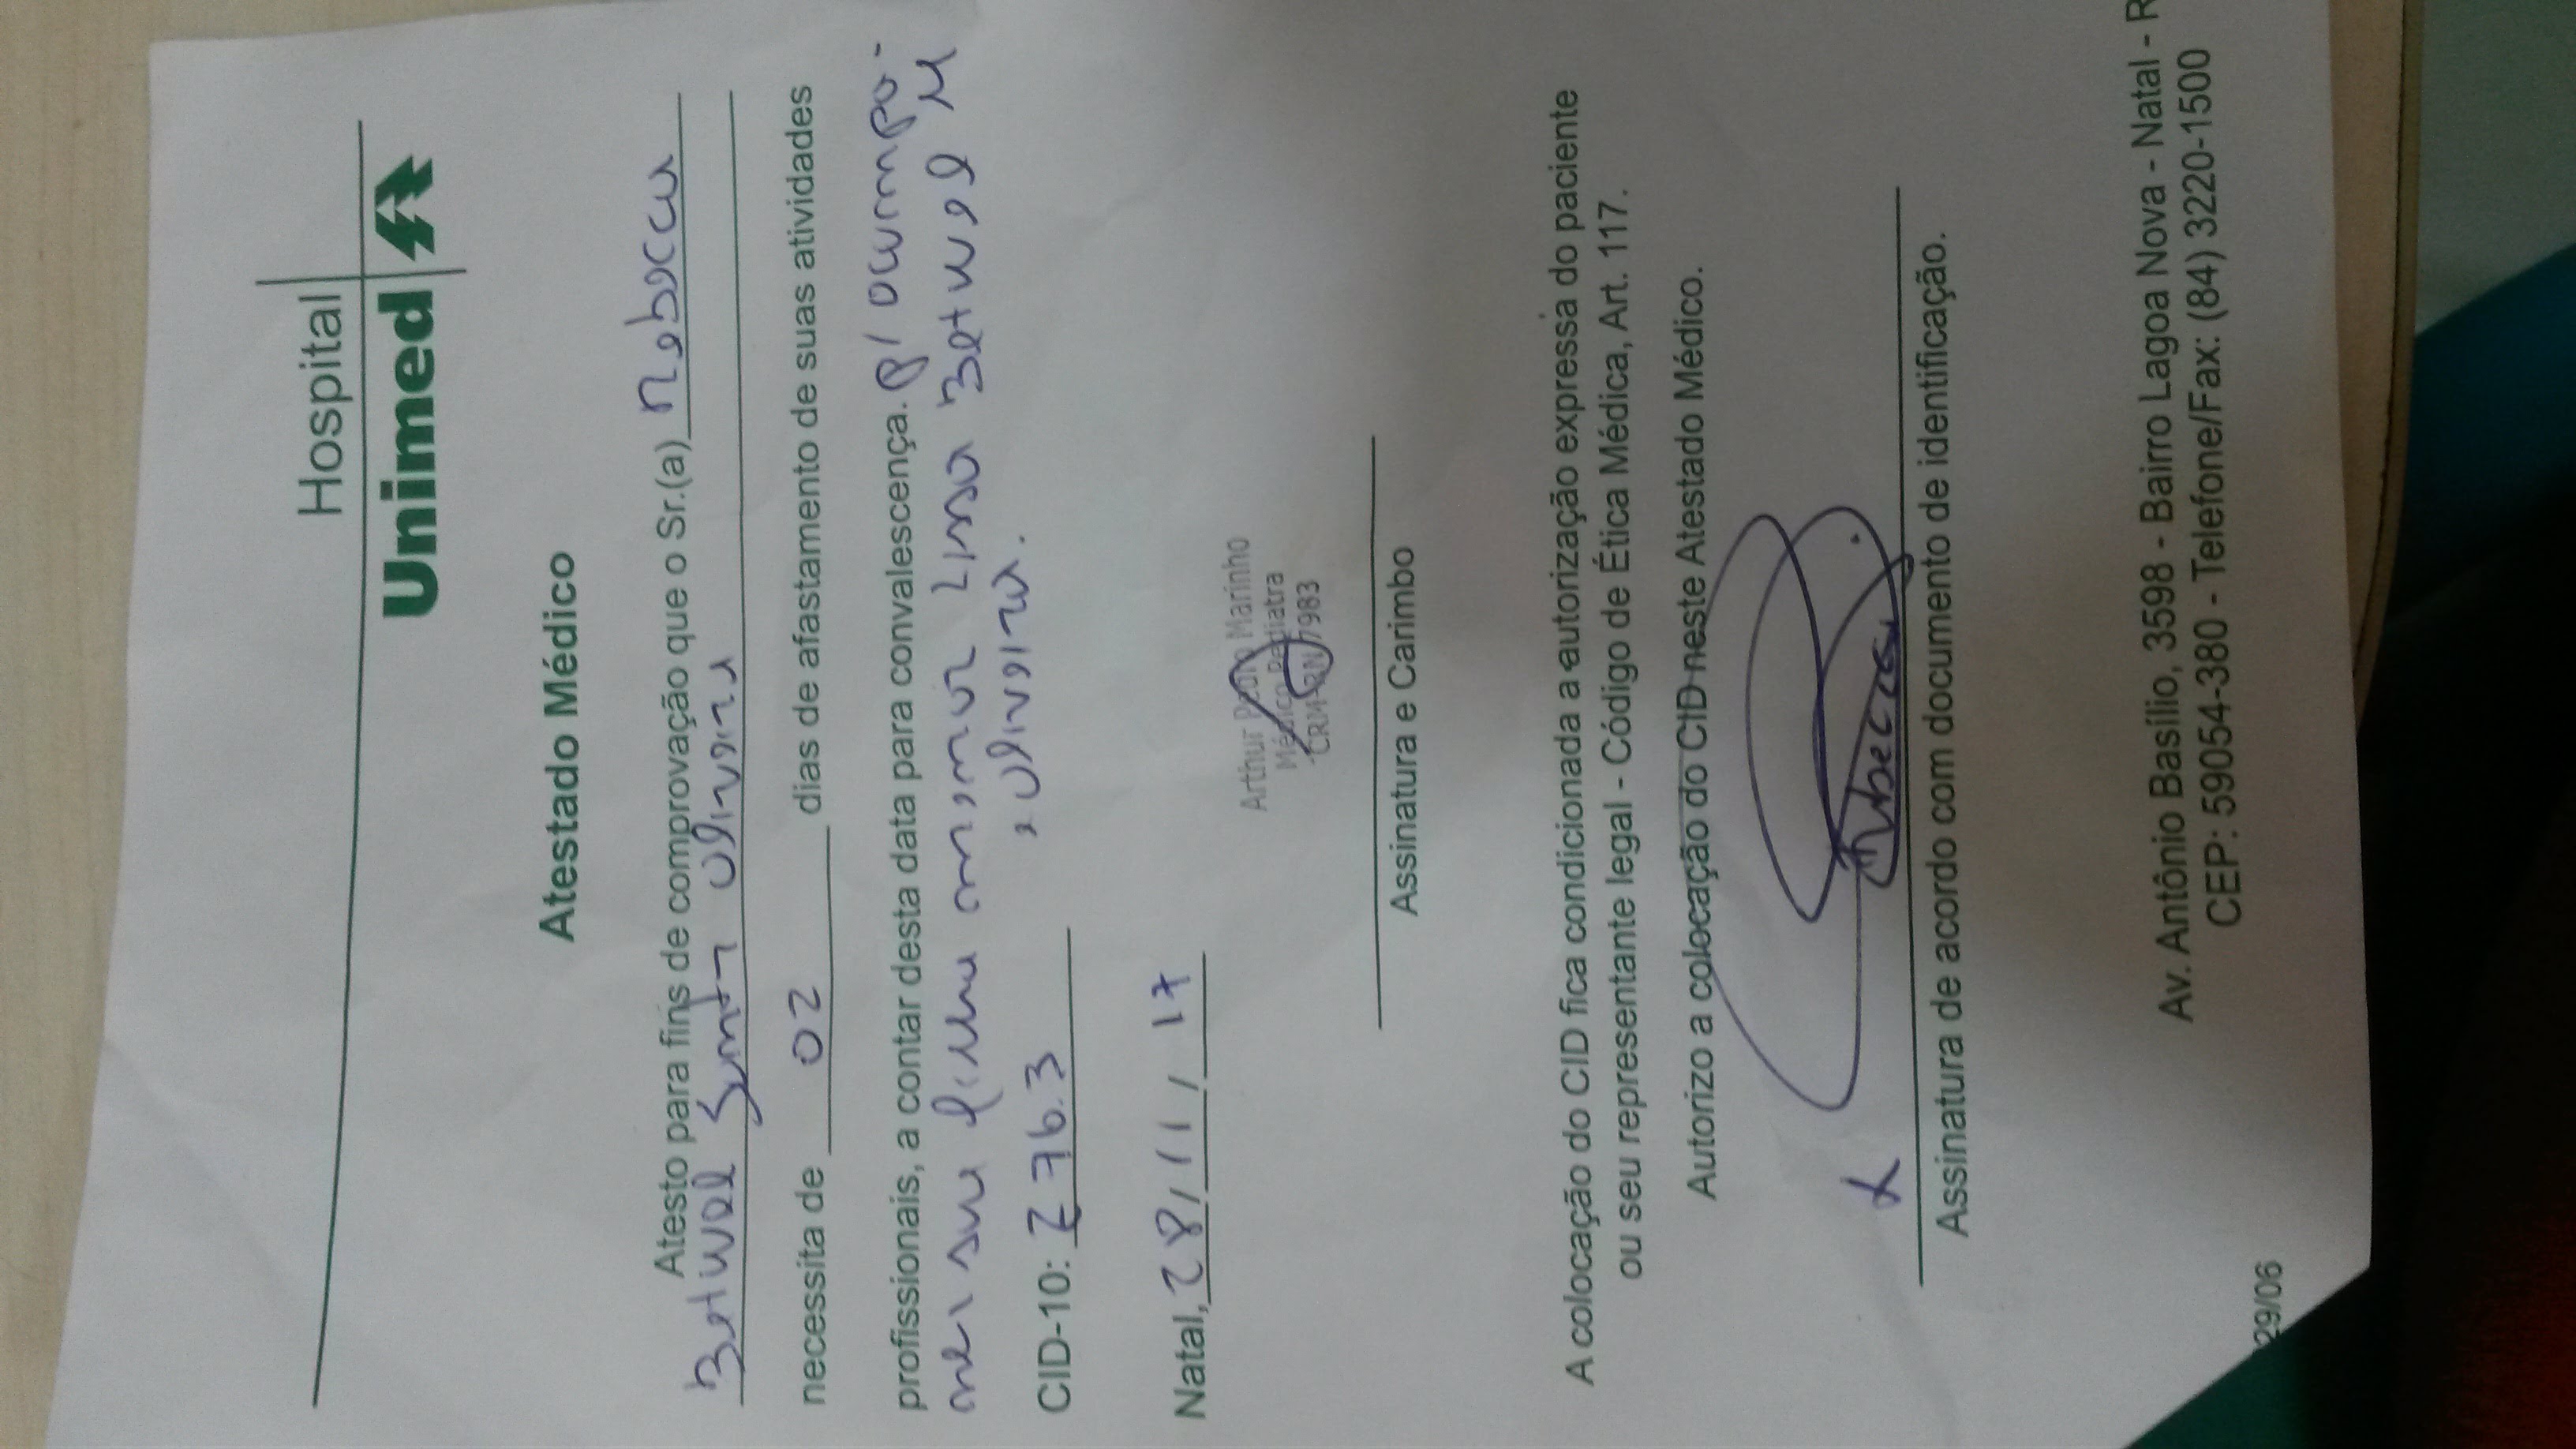 Hospital
Unimed
Atestado Médico
Atesto para fins de comprovação que o Sr.(a) Rebecca
Betwel Oliveira
necessita de 02 dias de afastamento de suas atividades
profissionais, a contar desta data para convalescença. p/ acompa-
nhar sua filha menor Lissa Betwel M
e Oliveira.
CID-10: Z 76.3
Natal, 28/11/17
Arthur Pedro Marinho
Médico Pediatra
CRM-RN 7983
Assinatura e Carimbo
A colocação do CID fica condicionada a autorização expressa do paciente
ou seu representante legal - Código de Ética Médica, Art. 117.
Autorizo a colocação do CID neste Atestado Médico.
Rebecca
Assinatura de acordo com documento de identificação.
Av. Antônio Basílio, 3598 - Bairro Lagoa Nova - Natal - R
CEP: 59054-380 - Telefone/Fax: (84) 3220-1500
29/06